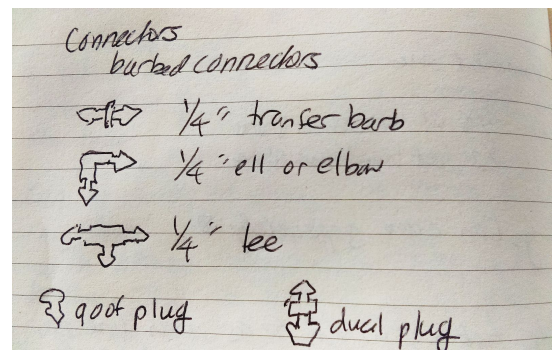 Connectors
barbed connectors
1/4" transfer barb
1/4" ell or elbow
1/4" tee
goof plug
dual plug